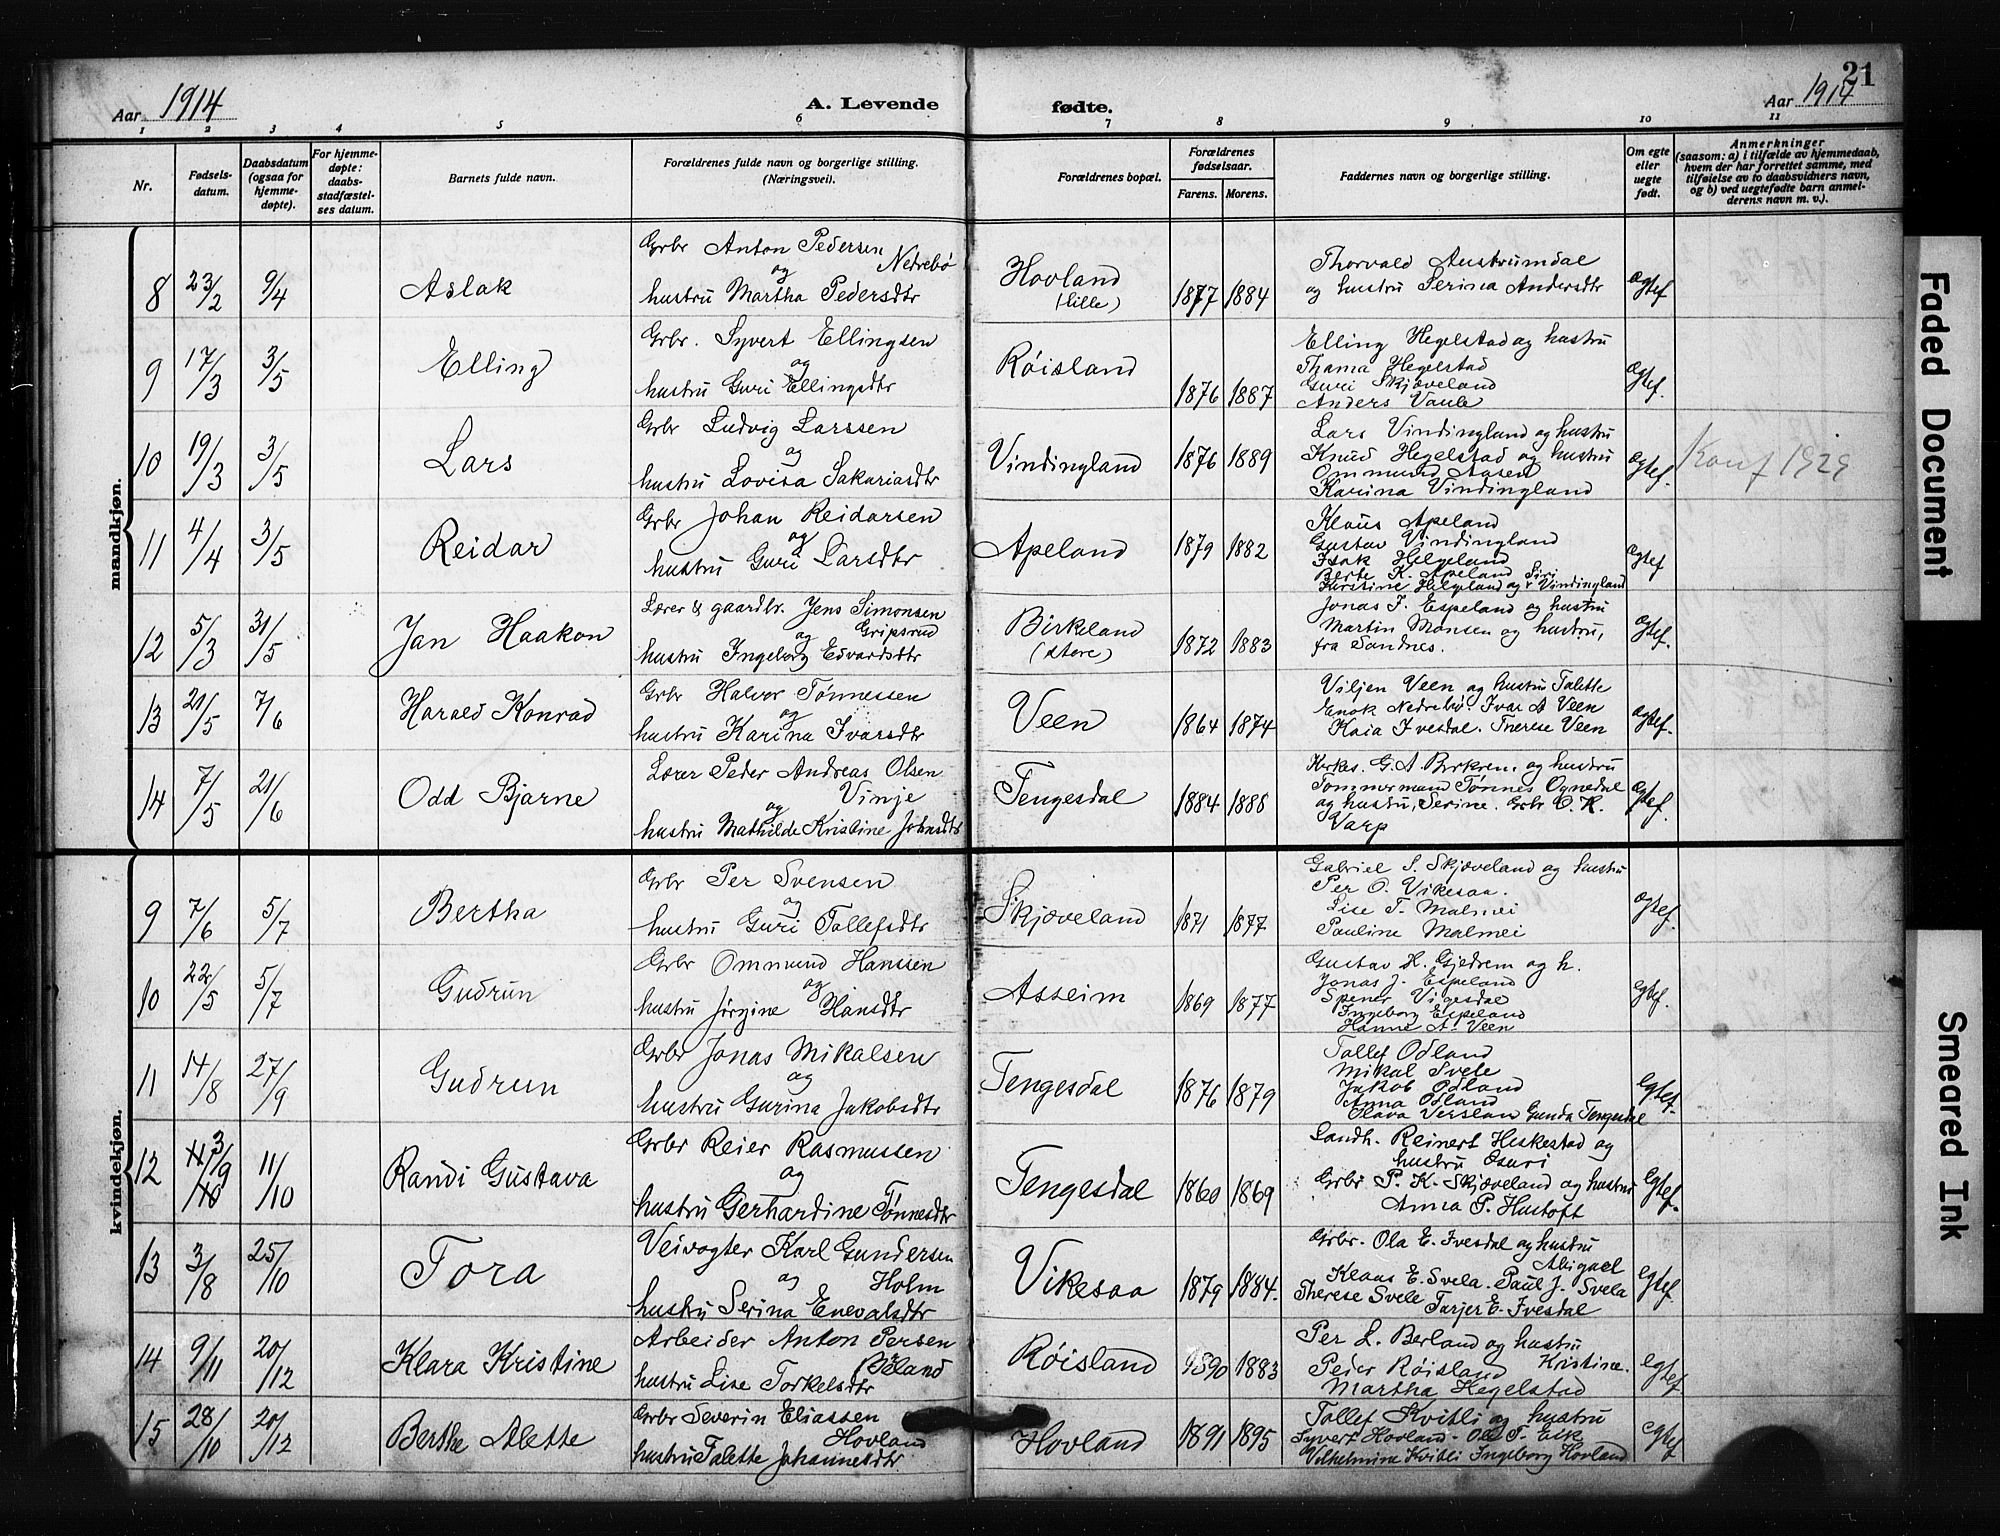 Aar 1914
A. Levende fødte.
Aar 1914
21
1 2 3 4 5 6 7 8 9 10 11
Nr.
Fødsels-
datum.
Daabsdatum
(ogsaa for
hjemme-
døpte).
For hjemme-
døpte:
daabs-
stadfæstel-
ses datum.
Barnets fulde navn.
Forældrenes fulde navn og borgerlige stilling.
(Næringsvei).
Forældrenes bopæl.
Forældrenes
fødselsaar.
Farens. Morens.
Faddernes navn og borgerlige stilling.
Om egte
eller
uegte
født.
Anmerkninger
(saasom: a) i tilfælde av hjemmedaab,
hvem der har forrettet samme, med
tilføielse av to daabsvidners navn,
og b) ved uegtefødte barn anmel-
derens navn m. v.).
mandkjøn.
8 23/2 9/4 Aslak
Grbr Anton Pedersen
Nedrebö
og
hustru Martha Pedersdtr
Hovland
(lille)
1877 1884
Thorvald Austrumdal
og hustru Serina Andersdtr
Ægtef
9 17/3 3/5 Elling
Grbr. Syvert Ellingsen
og
hustru Guri Ellingsdtr
Røisland
1876 1887
Elling Hegelstad og hustru
Thama Hegelstad
Guri Skjæveland
Anders Vaule
Ægtef.
10 19/3 3/5 Lars
Grbr Ludvig Larssen
og
hustru Lovisa Sakariasdtr
Vindingland
1876 1889
Lars Vindingland og hustru
Knud Hegelstad og hustru
Ommund Aasen
Karina Vindingland
Ægtef.
Konf 1929
11 4/4 3/5 Reidar
Grbr Johan Reidarsen
og
hustru Guri Larsdtr
Apeland
1879 1882
Klaus Apeland
Gustav Vindingland
Isak Helgeland
Berte K. Apeland Siri
Kirstine Helgeland og Vindingland
Ægtef
12 5/3 31/5 Jan Haakon
Lærer & gaardbr. Jens Simonsen
og Gripsrud
hustru Ingeborg Edvardsdtr
Birkeland
(store)
1872 1883
Jonas J. Espeland og hustru
Martin Monsen og hustru,
fra Sandnes.
Ægtef.
13 21/5 7/6 Harald Konrad
Grbr Halvor Tønnessen
og
hustru Karina Ivarsdtr
Veen
1864 1874
Viljen Veen og hustru Talette
Enok Nedrebø. Ivar A Veen
Kaia Ivesdal. Therese Veen
Ægtef.
14 7/5 21/6 Odd Bjarne
Lærer Peder Andreas Olsen
Vinje
og
hustru Mathilde Kristine Johnsdtr
Tengesdal
1884 1888
Kirkes. G. A. Birkrem og hustru
Tømmermand Tønnes Ognedal
og hustru, Serine. Grbr O. K.
Varp
Ægtef.
kvindekjøn.
9 7/6 5/7 Bertha
Grbr Per Svensen
og
hustru Guri Tollefsdtr
Skjæveland
1871 1877
Gabriel S. Skjæveland og hustru
Per O. Vikesaa.
Lise T. Malmei
Pauline Malmei
Ægtef.
10 22/5 5/7 Gudrun
Grbr Ommund Hanssen
og
hustru Jørgine Hansdtr
Asseim
1869 1877
Gustav H. Gjedrem og h.
Jonas J. Espeland
Spener Vigesdal
Ingeborg Espeland
Hanne A. Veen
Egtef.
11 14/8 27/9 Gudrun
Grbr Jonas Mikalsen
og
hustru Gurina Jakobsdtr
Tengesdal
1876 1879
Tollef Odland
Mikal Svele
Jakob Odland
Anna Odland
Olava Versland Gunda Tengesdal
Egtef.
12 3/9 11/10 Randi Gustava
Grbr Reier Rasmussen
og
hustru Gerhardine Tønnesdtr
Tengesdal
1860 1869
Landh. Reinert Heskestad og
hustru Osuri
Grbr P. K. Skjæveland og hustru
Anna P. Hustoft
Egtef.
13 3/8 25/10 Tora
Veivogter Karl Gundersen
og Holm
hustru Serina Enevalsdtr
Vikesaa
1879 1884.
Grbr. Ola E. Ivesdal og hustru
Abigael
Klaas E. Svela. Paul J. Svela
Therese Svele Tarjer E. Ivesdal
Egtef.
14 9/11 20/12 Klara Kristine
Arbeider Anton Persen
Øiland
hustru Lise Torkelsdtr
Røisland
1890 1883
Per L. Berland og hustru
Peder Røisland Kristine.
Martha Hegelstad
Egtef.
15 28/10 20/12 Berthe Alette
Grbr Severin Eliassen
Hovland
hustru Talette Johannesdtr
Hovland
1891 1895
Tollef Kvitli og hustru
Syvert Hovland. Ole T. Eik
Vilhelmine Kvitli Ingeborg Hovland
Egtef
Faded Document
Smeared Ink